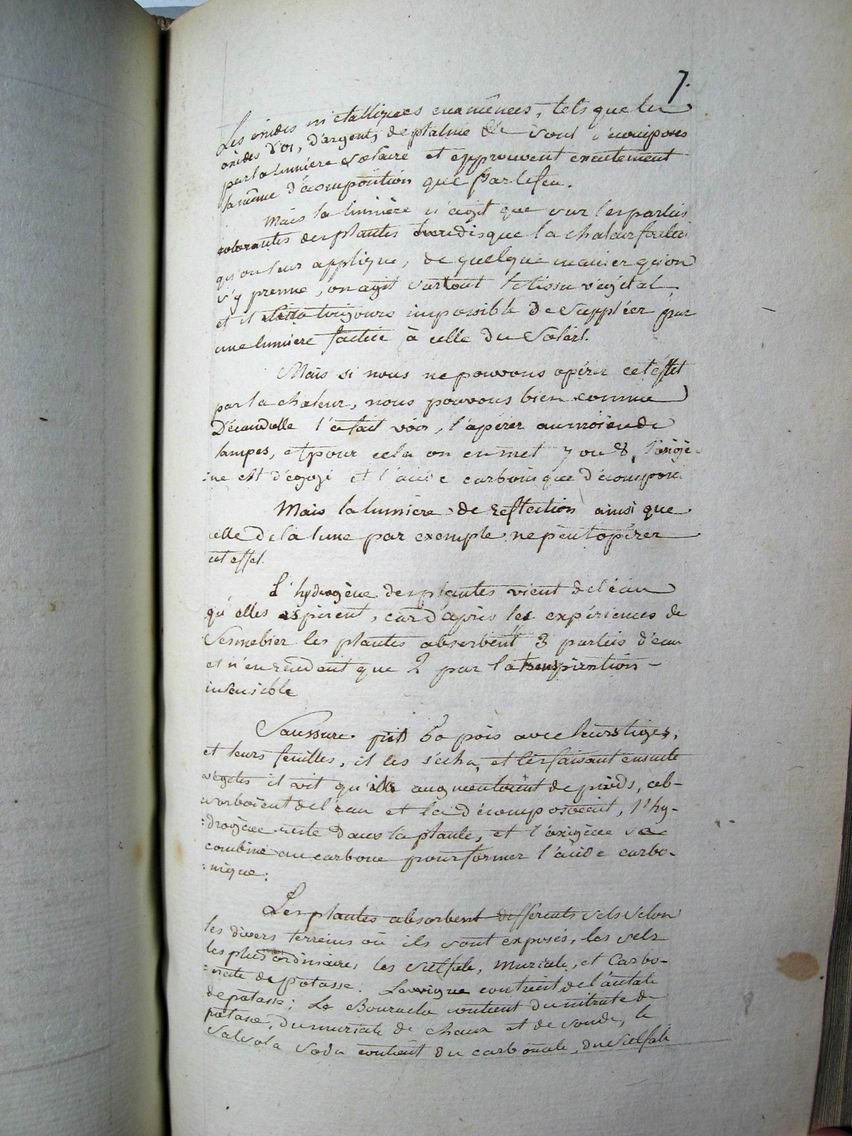 7.
Les oxides métalliques eux mêmes, tels que les
oxides d'or, d'argent, de platine &c sont décomposés
par la lumiere solaire et epprouvent exactement
la même décomposition que par le feu.
Mais la lumière n'agit que sur les parties
colorantes des plantes tandisque la chaleur factice
qu'on leur applique, de quelque manier qu'on
s'y prenne, on agit surtout le tissu végétal
et il sera toujours impossible de suppléer par
une lumière factice à celle du Soleil.
Mais si nous ne pouvons opérer cet effet
par la chaleur, nous pouvons bien comme
Décandolle l'a fait voir, l'opérer au moien de
lampes, et pour cela on en met 7 ou 8, l'oxigè-
:ne est dégagé et l'acide carbonique décomposé.
Mais la lumiere de reflection ainsi que
celle de la lune par exemple ne peut opérer
cet effet.
L'hydrogène des plantes vient de l'eau
qu'elles aspirent, car d'après les expériences de
Sennebier les plantes absorbent 3 parties d'eau
et n'en rendent que 2 par la transpiration
insensible
Saussure prit 60 pois avec leurs tiges,
et leurs feuilles, il les sécha, et les faisant ensuite
végéter il vit qu'ils augmentoient de poids, ab-
sorboient de l'eau et la décomposoient, l'hy-
:drogène reste dans la plante, et l'oxigène se
combine au carbone pour former l'acide carbo-
:nique.
Les plantes absorbent differents sels selon
les divers terreins où ils sont exposés, les sels
les plus ordinaires, les Sulfate, Muriate, et Carbo-
:nate de Potasse. La vigne contient de l'
de potasse; La Bourache contient du nitrate de
potasse, du muriate de chaux et de soude, le
Salsola soda contient du carbonate, du sulfate